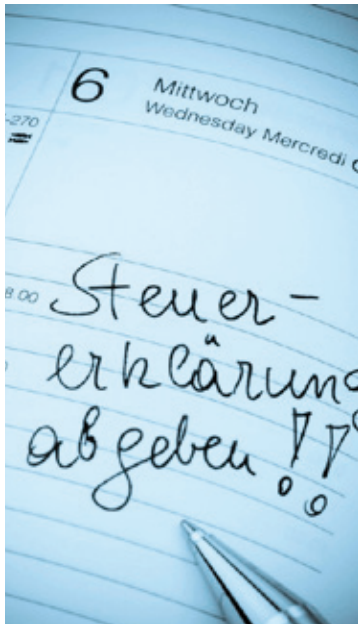 6 Mittwoch
Wednesday Mercredi
-270
8 00 Steuer-
erklärung
abgeben!!